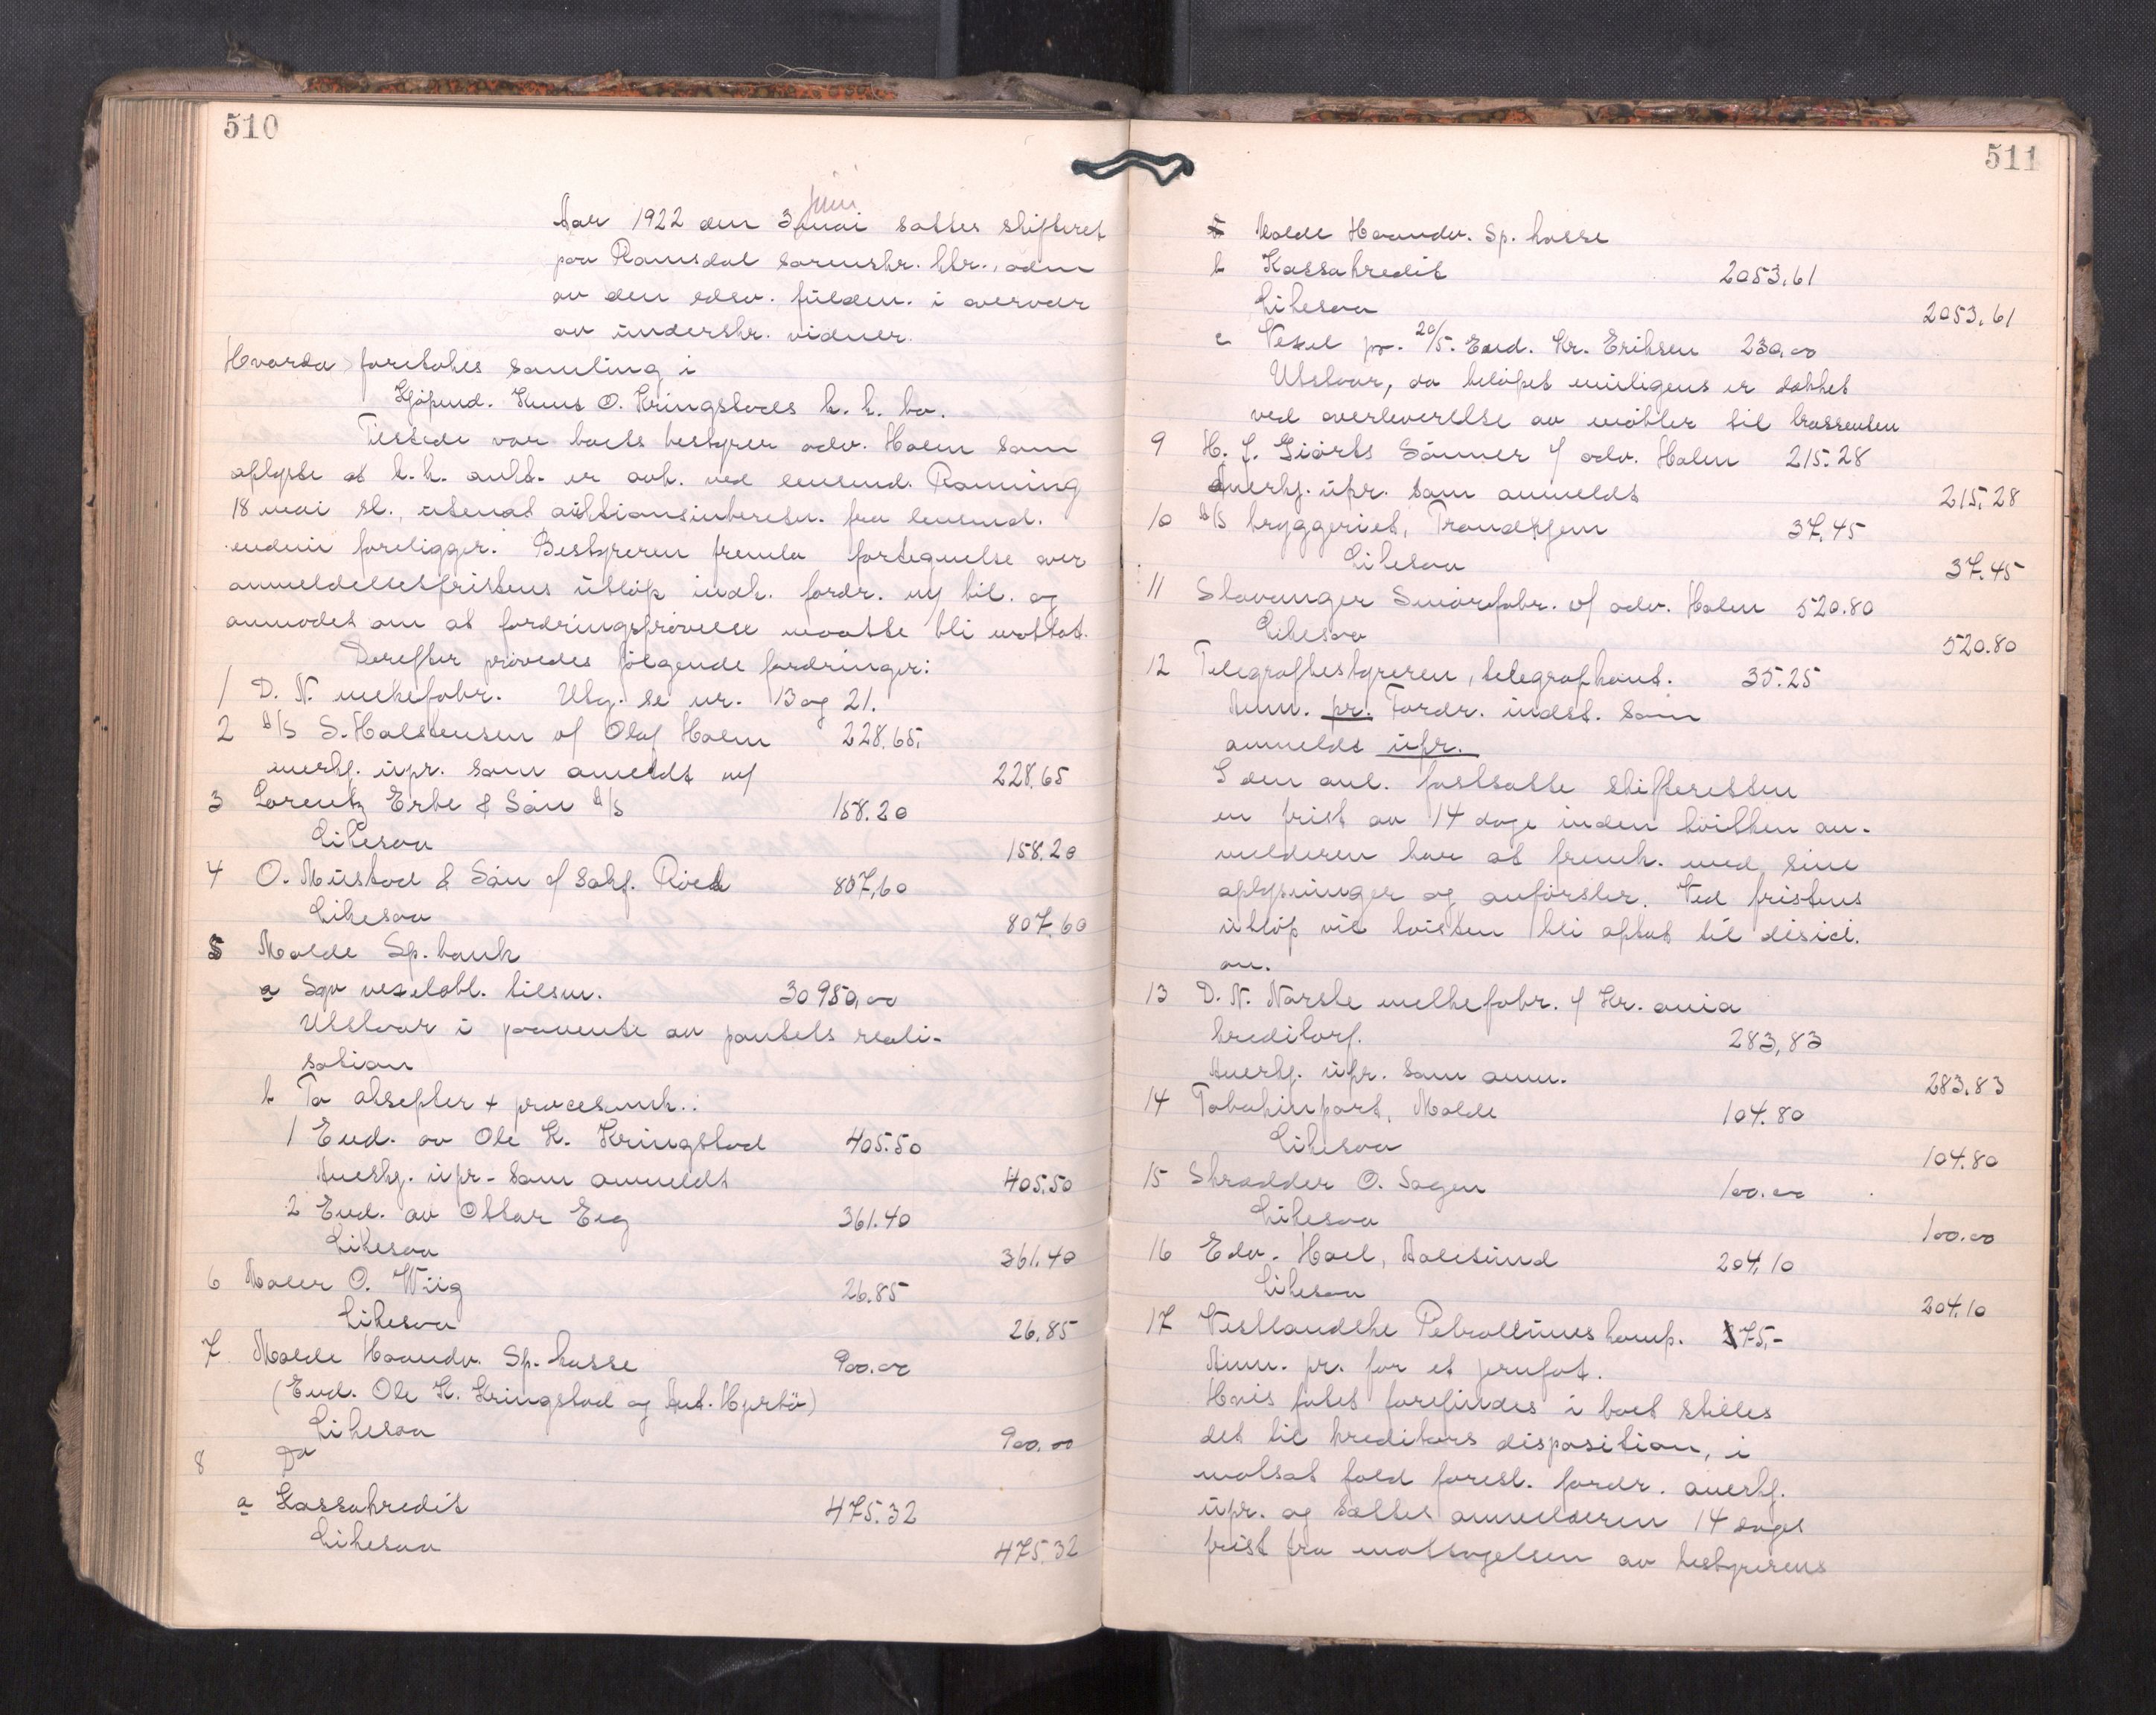 510
juni
Aar 1922 den 3 mai sattes skifteret
paa Romsdal sorenskr. ktr., adm
av den edsv. fuldm. i overvær
av underskr. vidner.
Hvorda foretokes samling i
Kjøpmd. Knut O. Kringstads k. k. bo.
Tilstede var boets bestyrer adv. Holm som
oplyste at t.h. aukt. er avh. ved lensmd. Rønning
18 mai sl., utenat auktionsinberetn. fra lensmd.
endnu foreligger. Bestyreren fremla fortegnelse over
anmeldelsesfristens utløp indk. fordr. m/ bil. og
anmodet om at fordringsprøvelse maatte bli mottat.
Derefter prøvedes følgende fordringer:
1 D. N. melkefabr. Utg. se nr. 13 og 21.
2 A/S S. Halstensen v/ Olaf Holm 228.65,
anerkj. upr. som ameldt m/ 228,65
3 Lorentz Erbe & Søn A/S 158.20
Likesaa 158.20
4 O. Mustad & Søn v/ sakf. Röed 807,60
Likesaa 807,60
5 Molde Sp. bank
a Sgv vexelobl. tilsm. 30950,00
Utstaar i paavente av pantets reali-
sation
b To aksepter + procesomk.:
1 End. av Ole K. Kringstad 405.50
Anerkj. upr. som anmeldt 405.50
2 End. av Ottar Eeg 361.40
Likesaa 361.40
6 Maler O. Wiig 26.85
Likesaa 26,85
7 Molde Haandv. Sp. kasse 900.00
(End. Ole K. Kringstad og Ant. Hjertø)
Likesaa 900.00
8 Do
a Kassakredit 475.32
Likesaa 475.32
511
Molde Haandv. Sp. kasse
b Kassakredit 2053,61
Likesaa 2053,61
c Vexel pr. 20/5. End. Kr. Eriksen 230,00
Utstaar, da beløpet muligens er dækket
ved overleverelse av møbler til trassenten
9 H. J. Giørts Sønner v/ adv. Holm 215.28
Anerkj. upr. som anmeldt 215,28
10 A/S bryggeriet, Trondhjem 37,45
Likesaa 37.45
11 Stavanger Smørfabr. v/ adv. Holm 520.80
Likesaa 520.80
12 Telegrafbestyreren, telegrafkont. 35.25
Anm. pr. Fordr. indst. som
anmeldt upr.
I den anl. fastsatte skifteretten
en frist av 14 dage inden hvilken an-
melderen har at fremk. med sine
oplysninger og anførsler. Ved fristens
utløp vil tvisten bli optat til desici-
on.
13 D. N. Norske melkefabr. v/ Kr.ania
kreditorf. 283,83
Anerkj. upr. som anm. 283.83
14 Tobakimport, Molde 104.80
Likesaa 104.80
15 Skrædder O. Sagen 100.00
Likesaa 100.00
16 Edv. Hoel, Aalesund 204,10
Likesaa 204.10
17 Vestlandske Petroleums komp. 75,-
Anm. pr. for et jernfat.
Hvis fatet forefindes i boet stilles
det til kreditors disposition, i
motsat fald forest. fordr. anerkj.
upr. og sættes anmelderen 14 dages
frist fra mottagelsen av bestyrerens